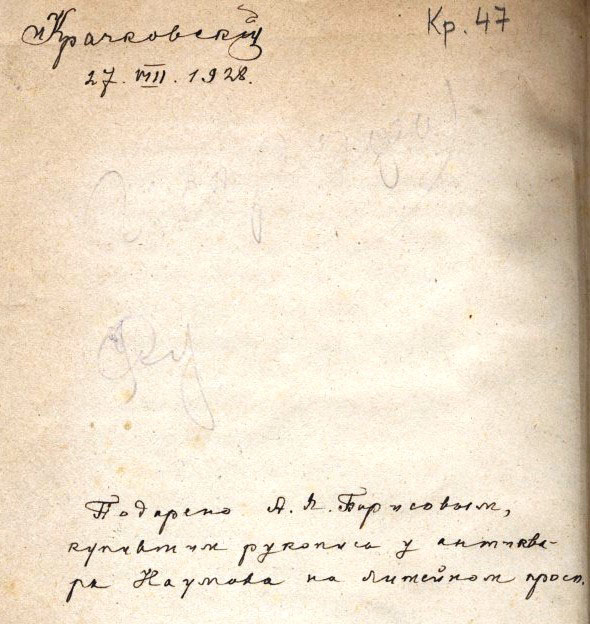 ИКрачковскій
Кр. 47
27. VIII. 1928.
Подарено А. Я. Борисовым,
купившим рукопись у антиква-
ра Наумова на Литейном просп.